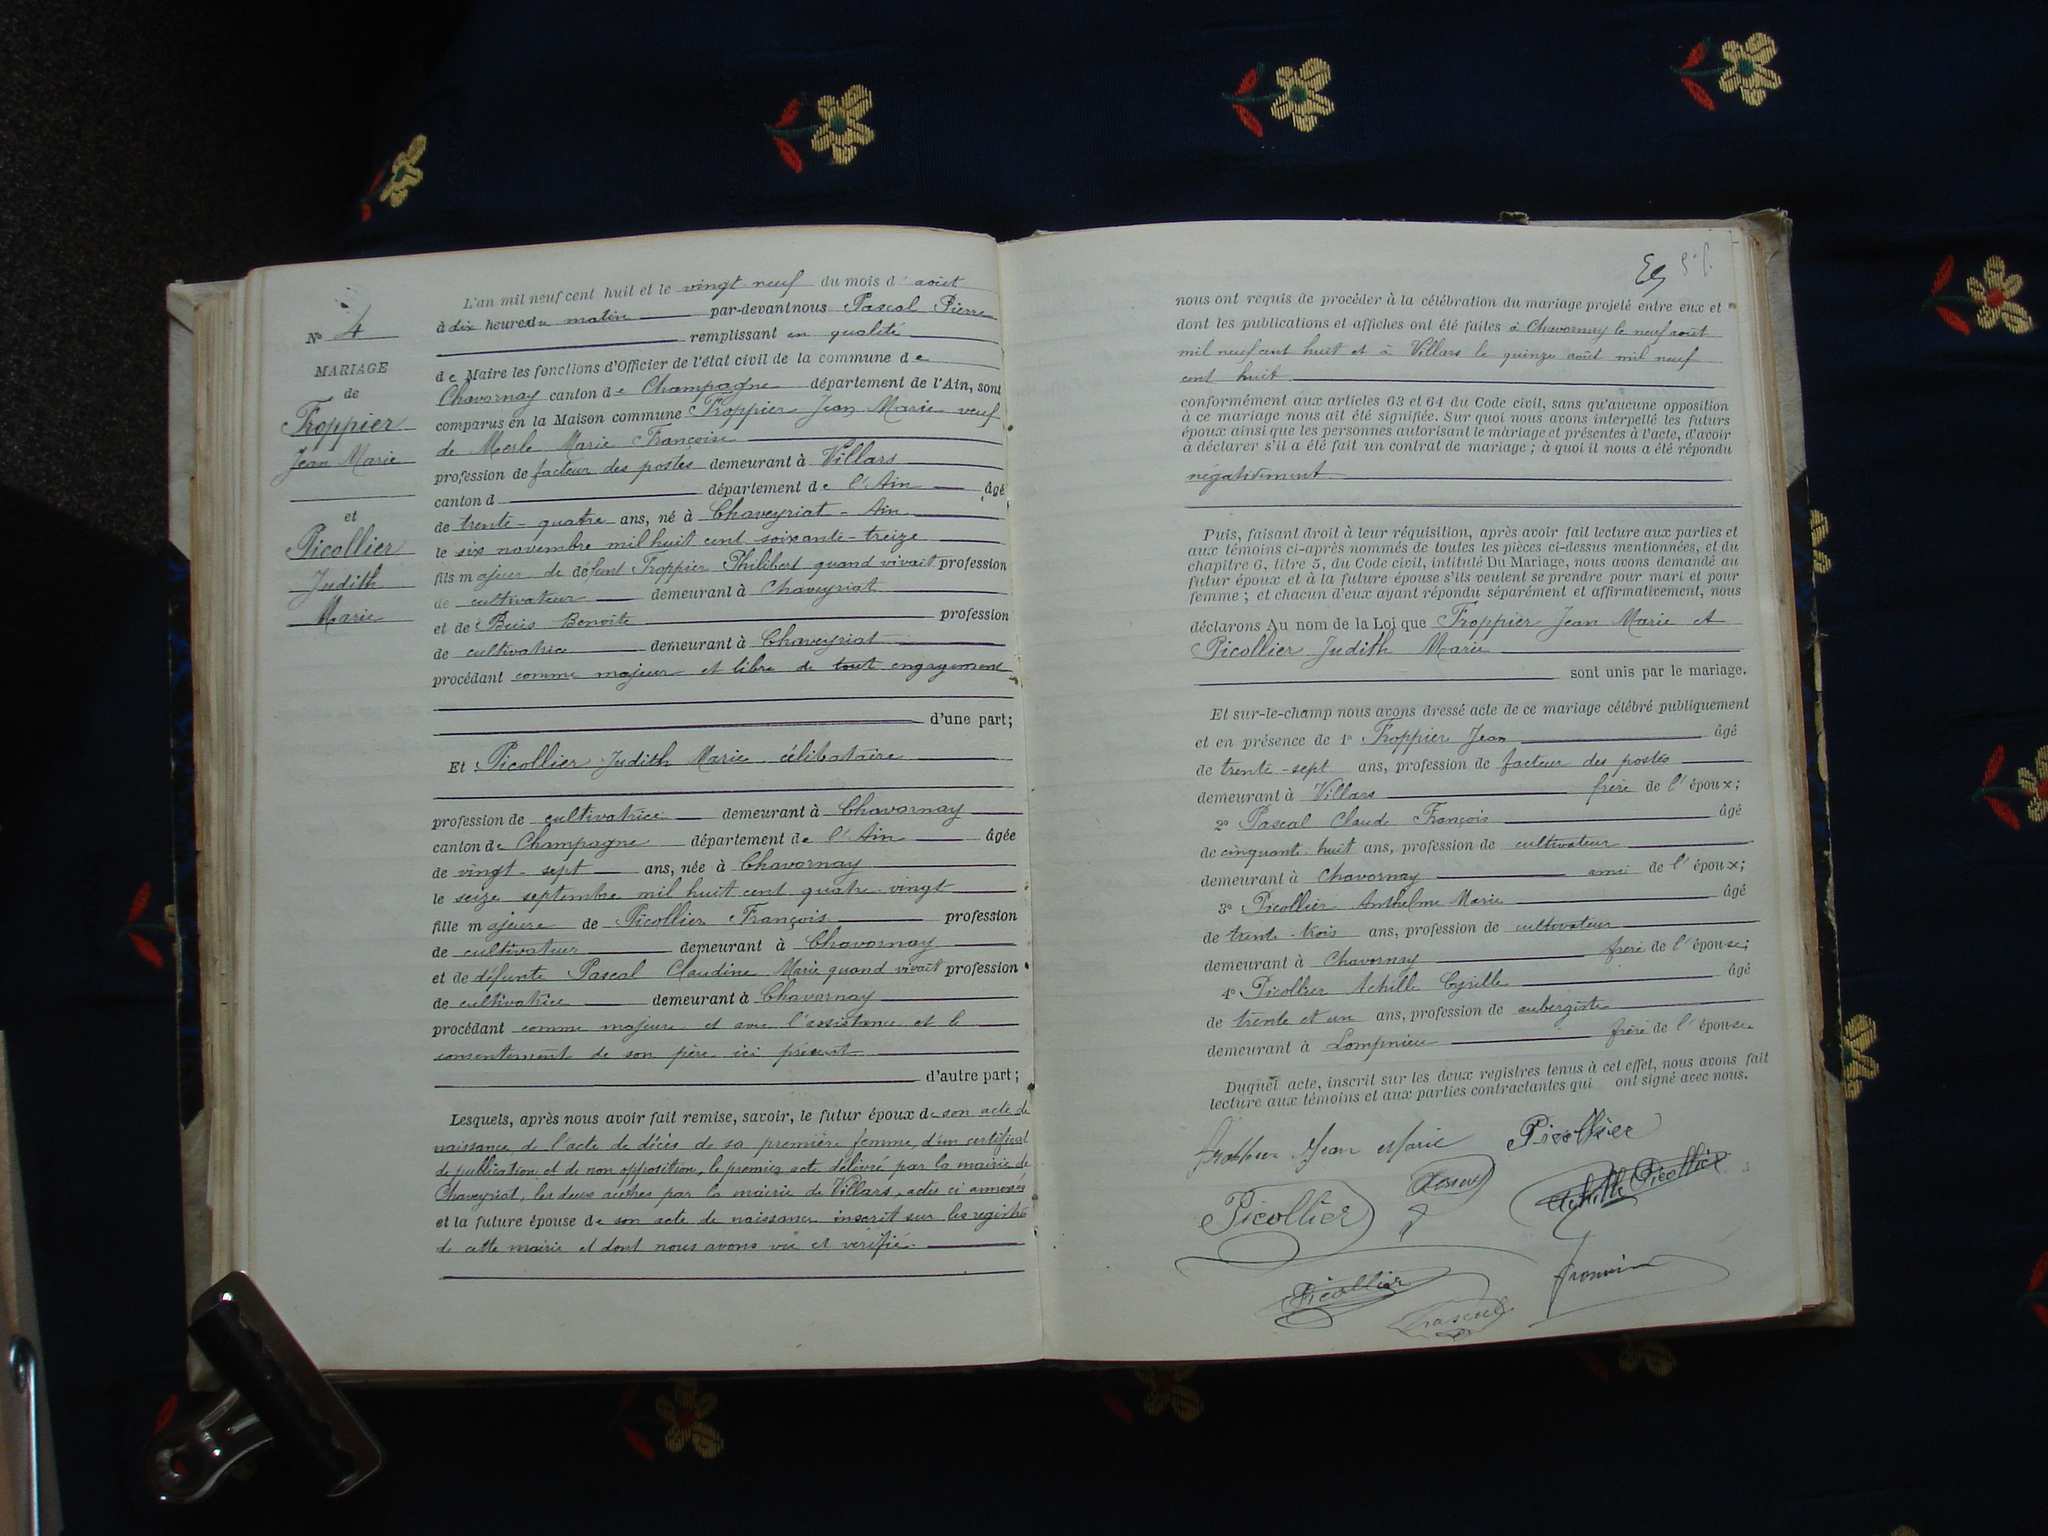 N° 4
MARIAGE
de
Troppier
Jean Marie
et
Picollier
Judith
Marie
L'an mil neuf cent huit et le vingt neuf du mois d'août
à dix heures du matin par-devant nous Pascal Pierre
remplissant en qualité
de Maire les fonctions d'Officier de l'état civil de la commune de
Chavornay canton de Champagne département de l'Ain, sont
comparus en la Maison commune Troppier Jean Marie veuf
de Merle Marie Françoise
profession de facteur des postes demeurant à Villars
canton d département de l'Ain âgé
de trente-quatre ans, né à Chaveyriat - Ain
le six novembre mil huit cent soixante-treize
fils majeur de défunt Troppier Philibert quand vivait profession
de cultivateur demeurant à Chaveyriat
et de Buis Benoite profession
de cultivatrice demeurant à Chaveyriat
procédant comme majeur et libre de tout engagement
d'une part;
Et Picollier Judith Marie célibataire
profession de cultivatrice demeurant à Chavornay
canton de Champagne département de l'Ain âgée
de vingt-sept ans, née à Chavornay
le seize septembre mil huit cent quatre-vingt
fille majeure de Picollier François profession
de cultivateur demeurant à Chavornay
et de défunte Pascal Claudine Marie quand vivait profession
de cultivatrice demeurant à Chavornay
procédant comme majeure et avec l'assistance et le
consentement de son père ici présent
d'autre part;
Lesquels, après nous avoir fait remise, savoir, le futur époux de son acte de
naissance, de l'acte de décès de sa première femme, d'un certificat
de publication et de non opposition, le premier acte délivré par la mairie de
Chaveyriat, les deux autres par la mairie de Villars, actes ci annexés
et la future épouse de son acte de naissance inscrit sur les registres
de cette mairie et dont nous avons vu et vérifié.
nous ont requis de procéder à la célébration du mariage projeté entre eux et
dont les publications et affiches ont été faites à Chavornay le neuf août
mil neuf cent huit et à Villars le quinze août mil neuf
cent huit
conformément aux articles 63 et 64 du Code civil, sans qu'aucune opposition
à ce mariage nous ait été signifiée. Sur quoi nous avons interpellé les futurs
époux ainsi que les personnes autorisant le mariage et présentes à l'acte, d'avoir
à déclarer s'il a été fait un contrat de mariage; à quoi il nous a été répondu
négativement
Puis, faisant droit à leur réquisition, après avoir fait lecture aux parties et
aux témoins ci-après nommés de toutes les pièces ci-dessus mentionnées, et du
chapitre 6, titre 5, du Code civil, intitulé Du Mariage, nous avons demandé au
futur époux et à la future épouse s'ils veulent se prendre pour mari et pour
femme; et chacun d'eux ayant répondu séparément et affirmativement, nous
déclarons Au nom de la Loi que Troppier Jean Marie et
Picollier Judith Marie
sont unis par le mariage.
Et sur-le-champ nous avons dressé acte de ce mariage célébré publiquement
et en présence de 1° Troppier Jean âgé
de trente-sept ans, profession de facteur des postes
demeurant à Villars frère de l'époux;
2° Pascal Claude François âgé
de cinquante-huit ans, profession de cultivateur
demeurant à Chavornay ami de l'époux;
3° Picollier Anthelme Marie âgé
de trente-trois ans, profession de cultivateur
demeurant à Chavornay frère de l'épouse;
4° Picollier Achille Cyrille âgé
de trente et un ans, profession de aubergiste
demeurant à Lompnieu frère de l'épouse
Duquel acte, inscrit sur les deux registres tenus à cet effet, nous avons fait
lecture aux témoins et aux parties contractantes qui ont signé avec nous.
Troppier Jean Marie Picollier
Picollier Achille Picollier
Picollier Pascal